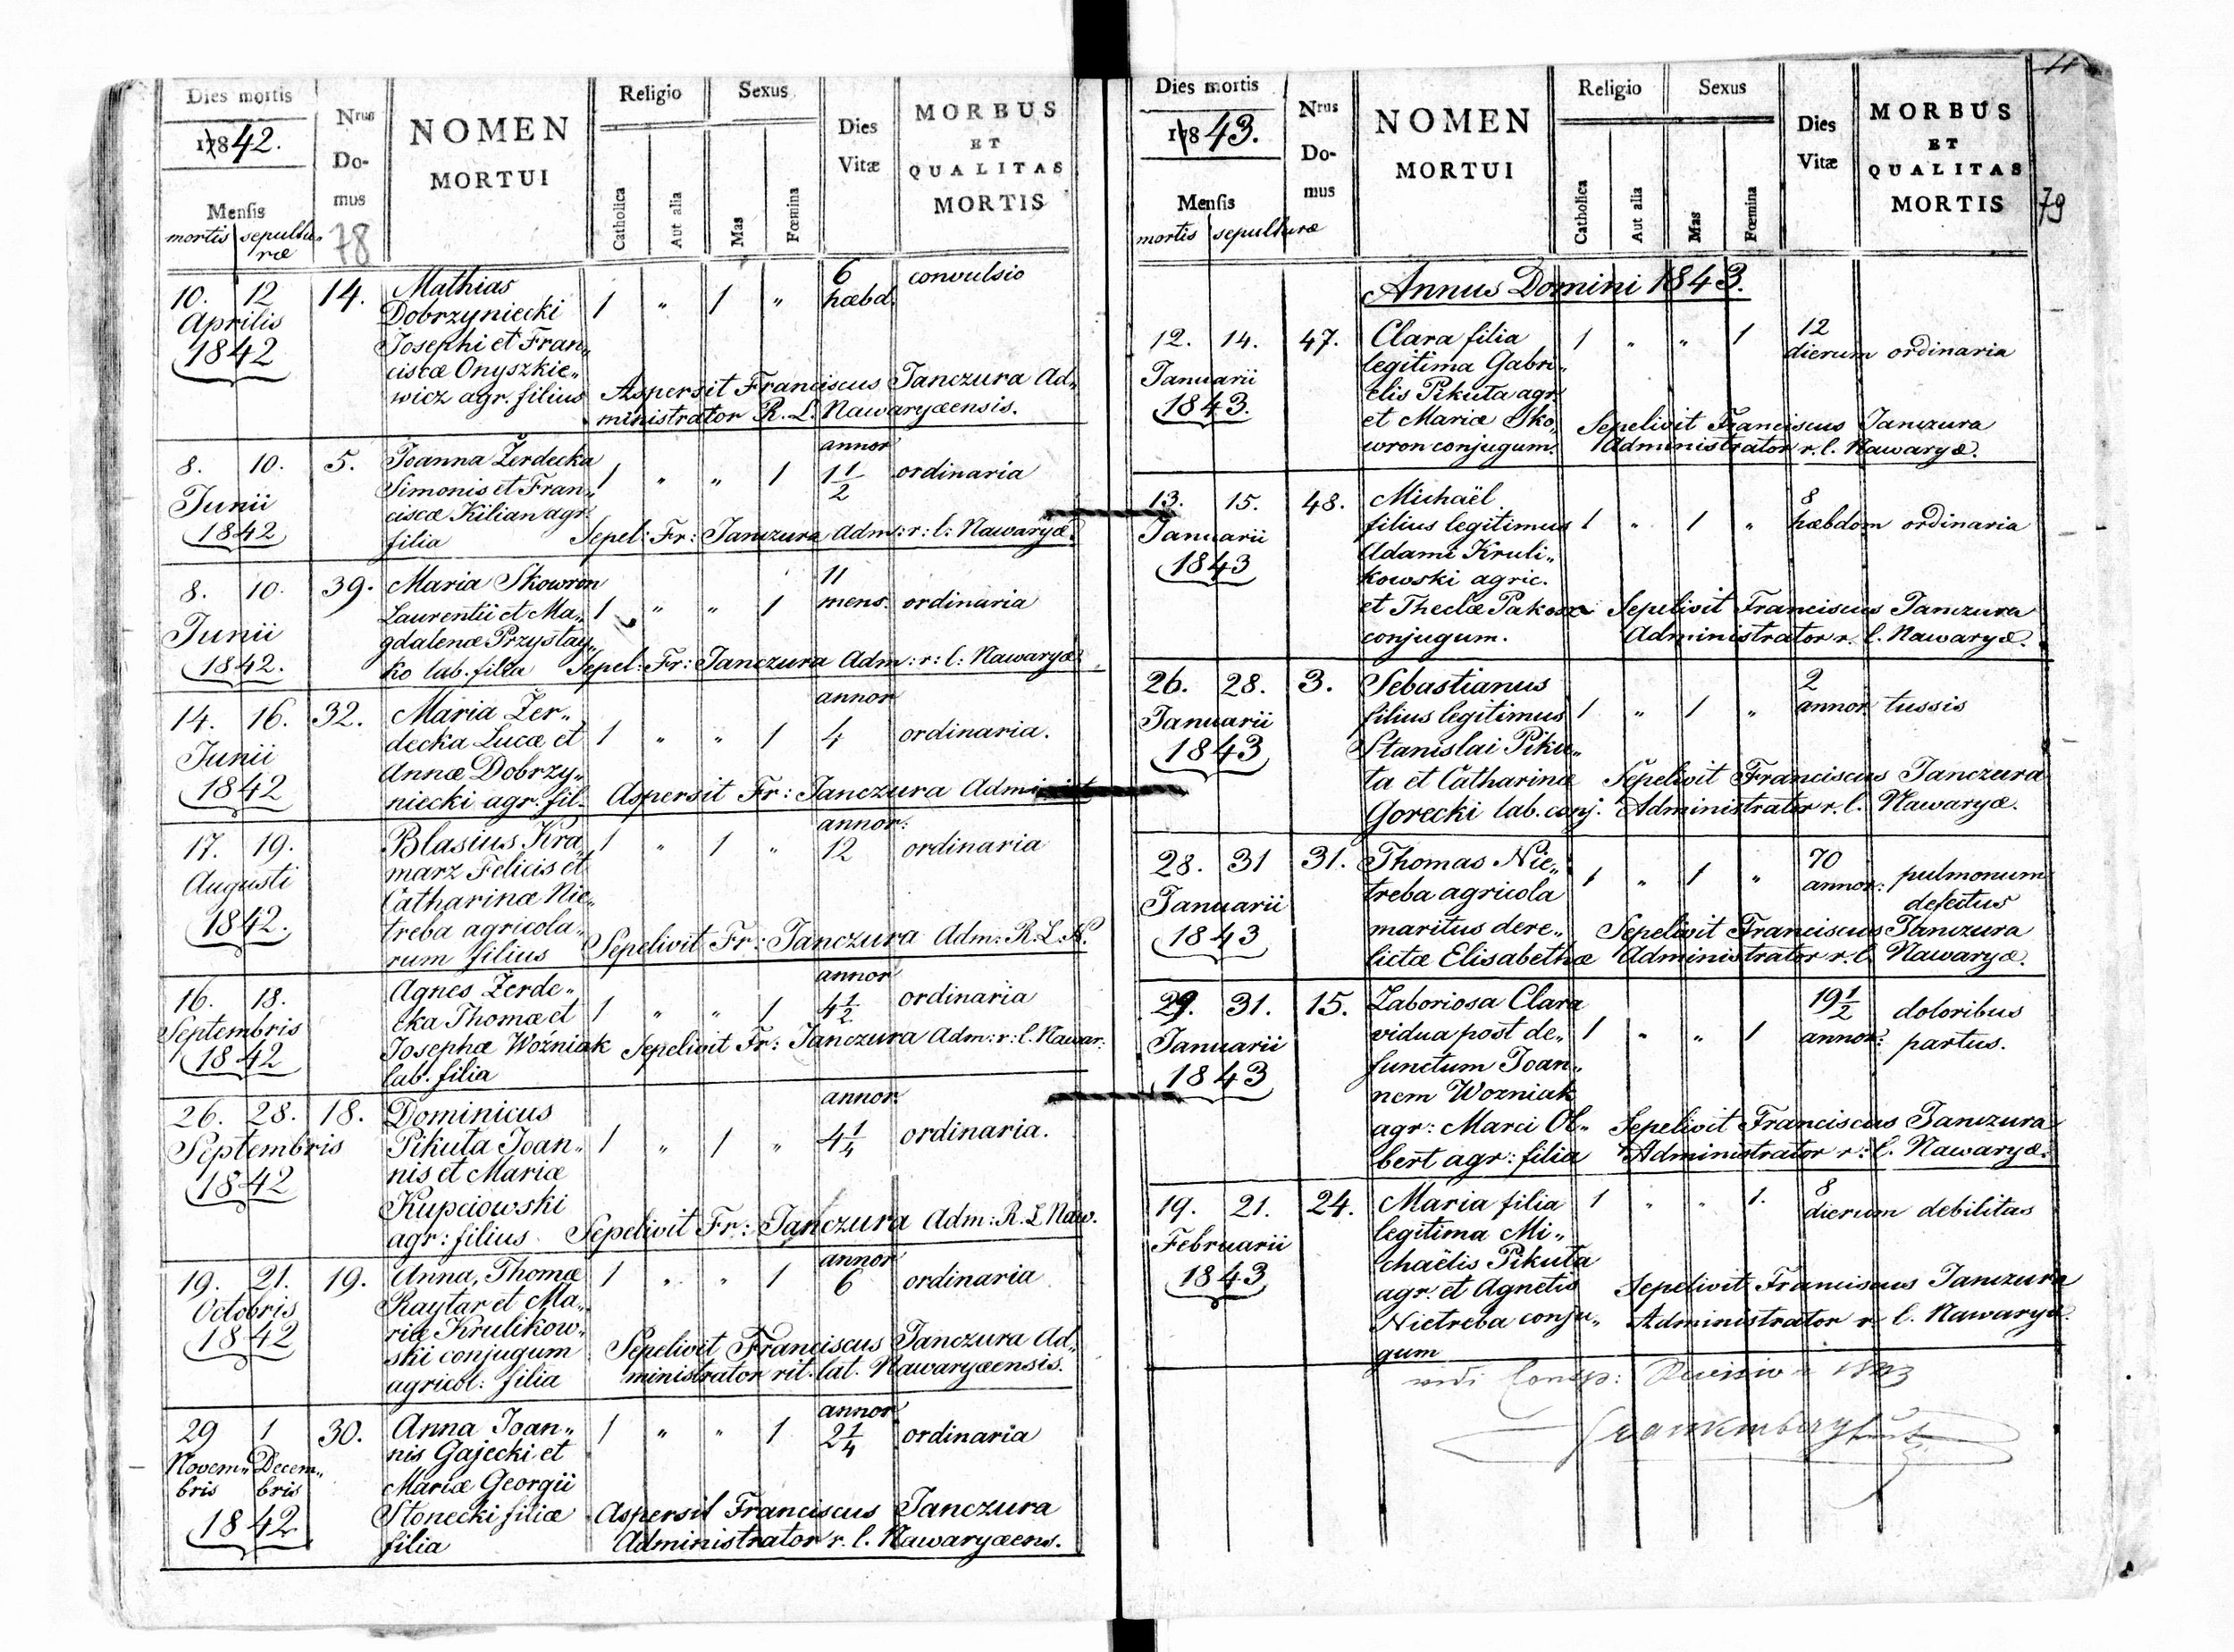 Dies mortis
1842.
Mensis
mortis sepultu„
ræ
Nrus
Do-
mus
78
NOMEN
MORTUI
Religio
Catholica
Aut alia
Sexus
Mas
Fœmina
Dies
Vitæ
MORBUS
ET
QUALITAS
MORTIS
10. 12 14. Mathias 1 „ 1 „ 6 convulsio
Aprilis Dobrzyniecki hæbd.
1842 Josephi et Fran„
ciscæ Onyszkie„
wicz agr. filius Aspersit Franciscus Janczura Ad„
ministrator R. L. Nawaryæensis.
8. 10. 5. Joanna Żerdecka annor
Junii Simonis et Fran„ 1 „ „ 1 1 1/2 ordinaria
1842 ciscæ Kilian agr.
filia Sepel: Fr: Janczura Adm: r: l: Nawaryæ.
8. 10. 39. Maria Skowron 11
Junii Laurentii et Ma„ 1 „ „ 1 mens. ordinaria
1842. gdalenæ Przystay„
ko lab. filia Sepel: Fr: Janczura Adm: r: l: Nawaryæ.
14. 16. 32. Maria Żer„ annor
Junii decka Lucæ et 1 „ „ 1 4 ordinaria.
1842 Annæ Dobrzy„
niecki agr. fil. Aspersit Fr: Janczura Administ
17. 19. Blasius Kra„ 1 „ 1 „ annor: 12 ordinaria
Augusti marz Felicis et
1842. Catharinæ Nie„
treba agricola„
rum filius Sepelivit Fr: Janczura Adm: R. L. N.
16. 18. Agnes Żerde„ annor
Septembris cka Thomæ et 1 „ „ 1 4 1/2 ordinaria
1842 Josephæ Woźniak Sepelivit Fr: Janczura Adm: r: l. Nawar:
lab. filia
26. 28. 18. Dominicus annor:
Septembris Pikuta Joan„ 1 „ 1 „ 4 1/4 ordinaria.
1842 nis et Mariæ
Kupciowski
agr: filius Sepelivit Fr: Janczura Adm: R. L Naw.
19. 21. 19. Anna, Thomæ 1 „ „ 1 annor 6 ordinaria
Octobris Raytar et Ma„
1842 riæ Krulikow„
ski conjugum Sepelivit Franciscus Janczura Ad„
agricol: filia ministrator rit. lat. Nawaryæensis.
29 1 30. Anna Joan„ 1 „ „ 1 annor 2 1/4 ordinaria
Novem„ Decem„ nis Gajecki et
bris bris Mariæ Georgii
1842 Stonecki filiæ Aspersit Franciscus Janczura
filia Administrator r. l. Nawaryæens.
Dies mortis
1843.
Mensis
mortis sepulturæ
Nrus
Do-
mus
NOMEN
MORTUI
Religio
Catholica
Aut alia
Sexus
Mas
Fœmina
Dies
Vitæ
MORBUS
ET
QUALITAS
MORTIS
79
Annus Domini 1843.
12. 14. 47. Clara filia 1 „ „ 1 12
Januarii legitima Gabri„ dierum ordinaria
1843. elis Pikuta agr.
et Mariæ Sko„ Sepelivit Franciscus Janczura
wron conjugum. Administrator r. l. Nawaryæ.
13. 15. 48. Michaël 8
Januarii filius legitimus 1 „ 1 „ hæbdom ordinaria
1843 Adami Kruli„
kowski agric.
et Theclæ Pakosz Sepelivit Franciscus Janczura
conjugum. Administrator r. l. Nawaryæ.
26. 28. 3. Sebastianus 2
Januarii filius legitimus 1 „ 1 „ annor. tussis
1843 Stanislai Piku„
ta et Catharinæ Sepelivit Franciscus Janczura
Gorecki lab. conj. Administrator r. l. Nawaryæ.
28. 31 31. Thomas Nie„ 70
Januarii treba agricola 1 „ 1 „ annor: pulmonum
1843 maritus dere„ defectus
lictæ Elisabethæ Sepelivit Franciscus Janczura
Administrator r. l. Nawaryæ.
29. 31. 15. Laboriosa Clara 19 1/2 doloribus
Januarii vidua post de„ 1 „ „ 1 annor: partus.
1843 functum Joan„
nem Wozniak
agr: Marci Ol„ Sepelivit Franciscus Janczura
bert agr: filia Administrator r: l. Nawaryæ.
19. 21. 24. Maria filia 1 „ „ 1. 8
Februarii legitima Mi„ dierum debilitas
1843 chaëlis Pikuta
agr. et Agnetis Sepelivit Franciscus Janczura
Nietreba conju„ Administrator r. l. Nawaryæ.
gum
1843